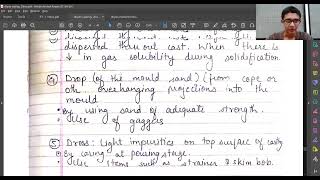 dispersed thru out cast. When there is
↓ in gas solubility during solidification.
④ Drop (of the mould sand) (from cope or
oth. overhanging projections into the
mould
By using sand of adequate strength.
Use of gaggers
⑤ Dross: Light impurities on top surface of casting
By caring at pouring stage.
Use items such as strainer & skim bob.